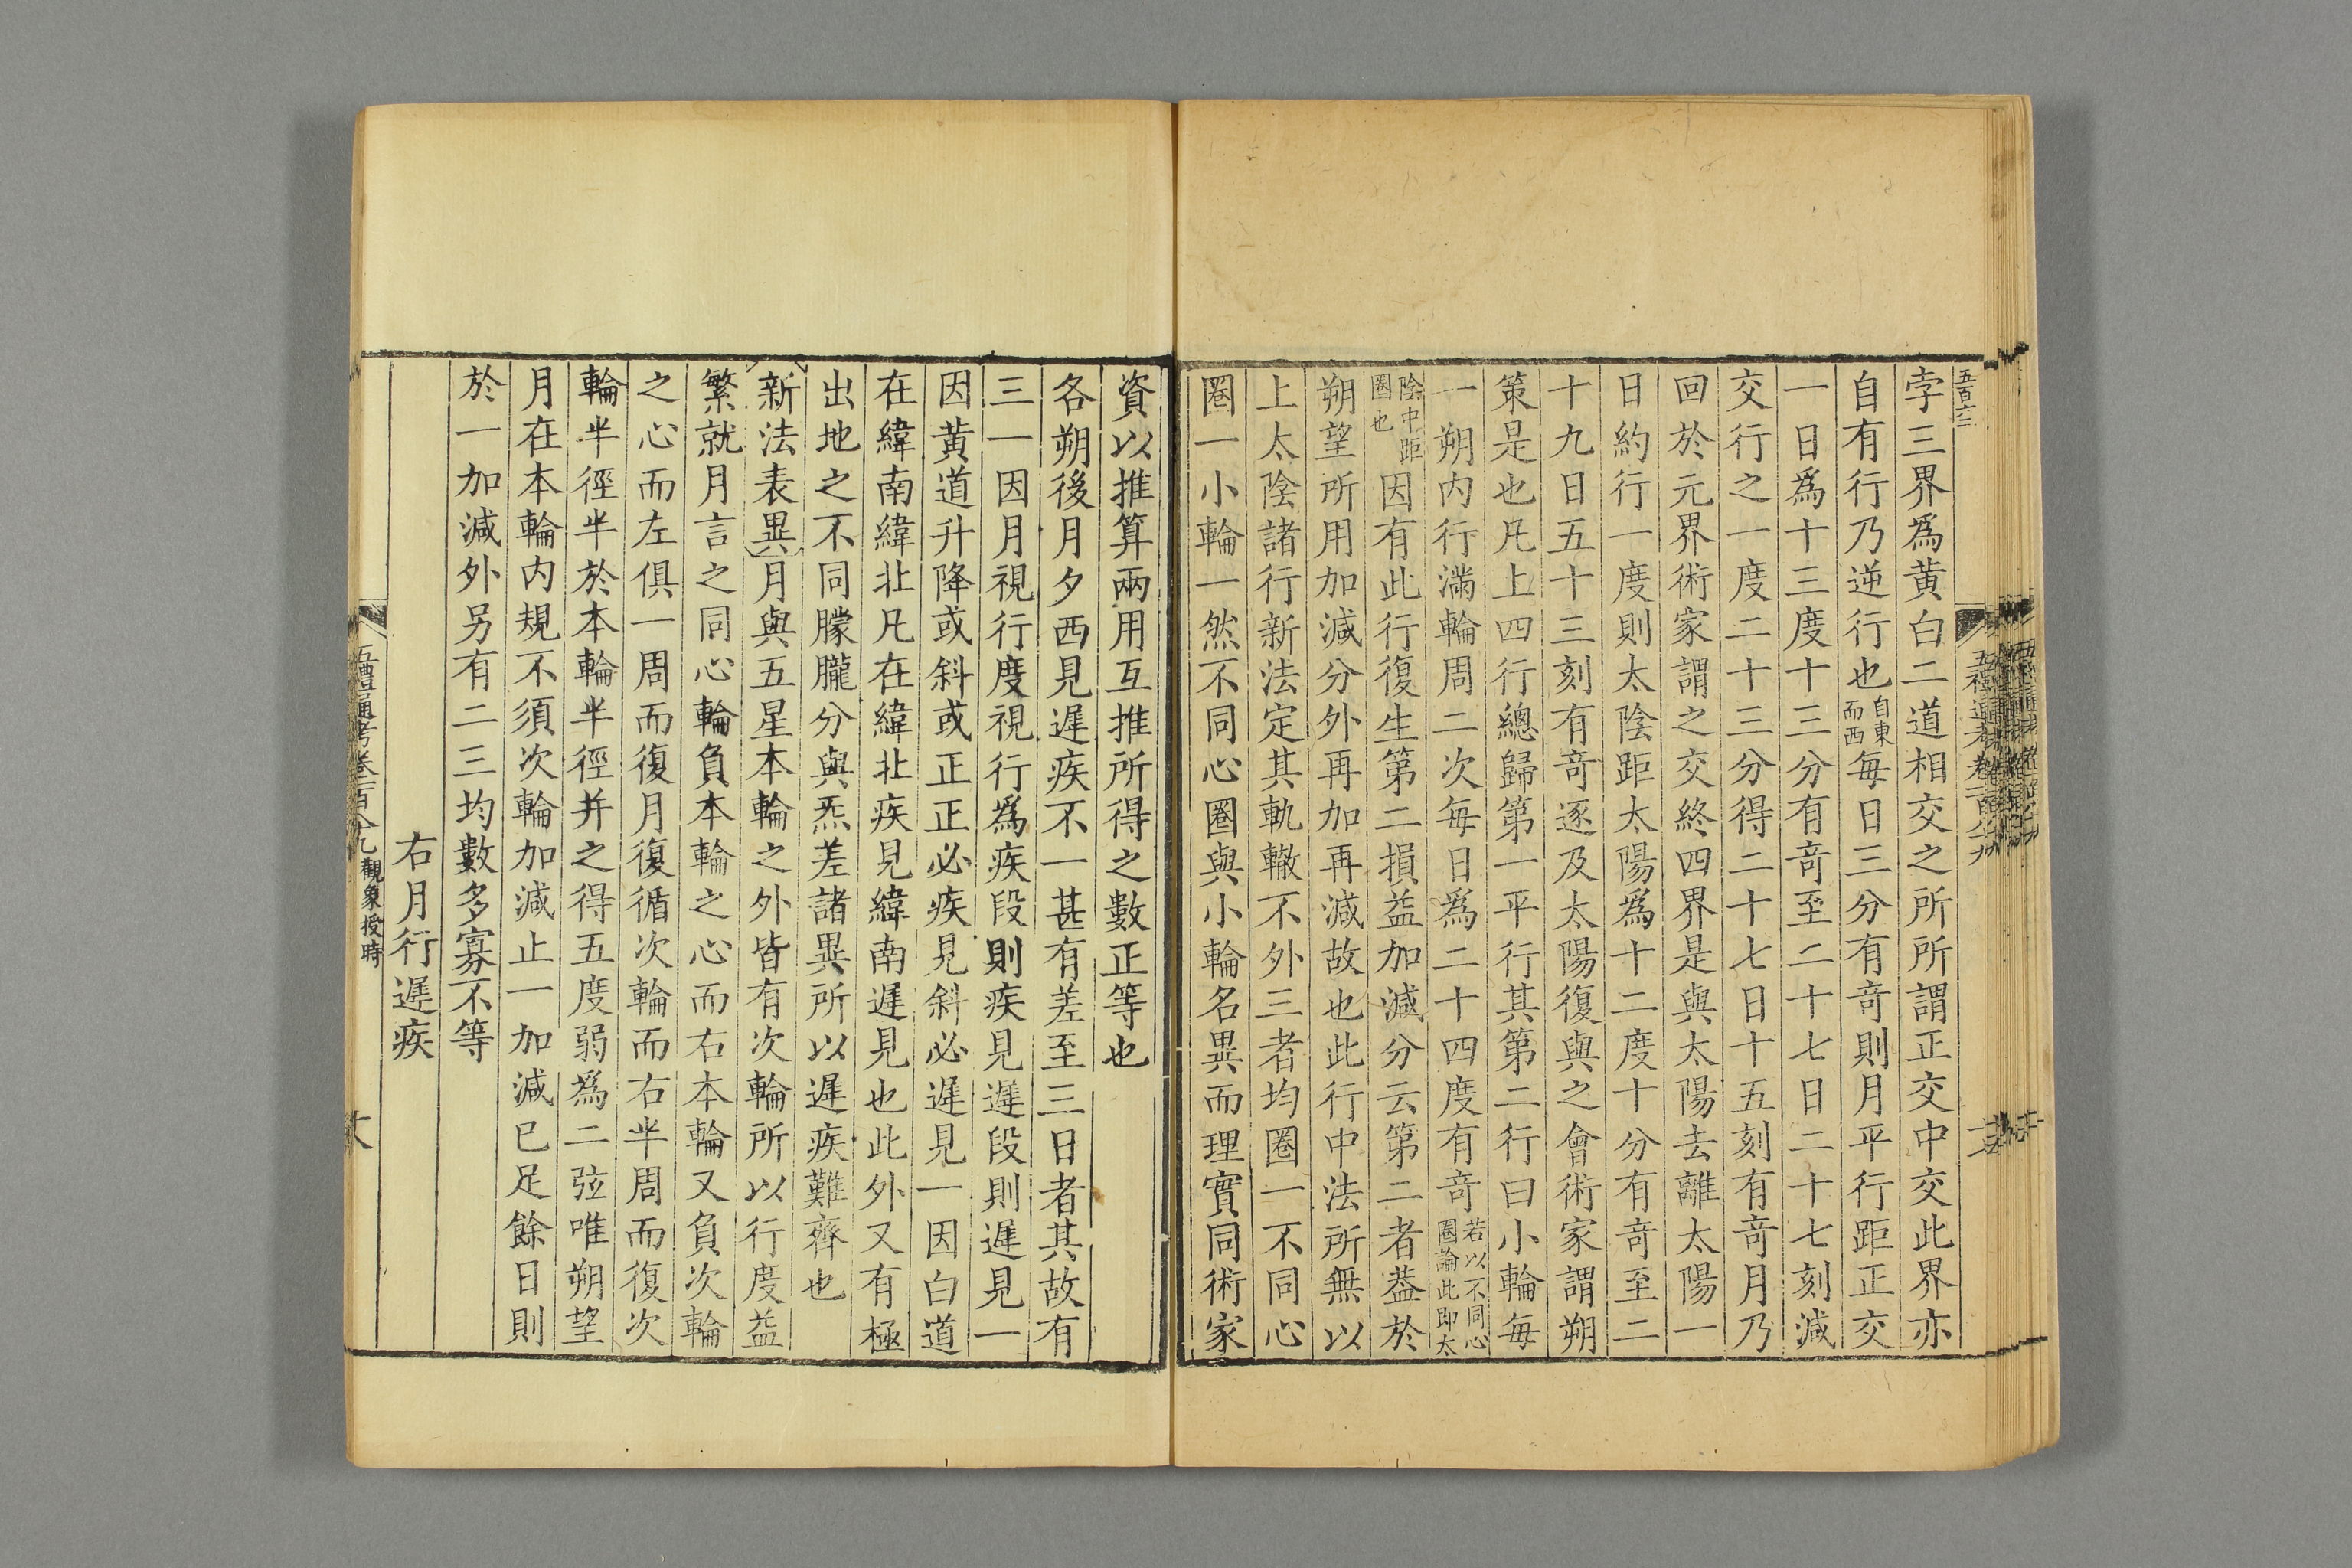 五百六三
孛三界爲黄白二道相交之所所謂正交中交此界亦
自有行乃逆行也自東而西每日三分有竒則月平行距正交
一日爲十三度十三分有竒至二十七日二十七刻減
交行之一度二十三分得二十七日十五刻有竒月乃
回於元界術家謂之交終四界是與太陽去離太陽一
日約行一度則太陰距太陽爲十二度十分有竒至二
十九日五十三刻有竒逐及太陽復與之會術家謂朔
策是也凡上四行總歸第一平行其第二行曰小輪每
一朔内行滿輪周二次每日爲二十四度有竒若以不同心圈論此即太
陰中距圈也因有此行復生第二損益加減分云第二者葢於
朔望所用加減分外再加再減故也此行中法所無以
上太陰諸行新法定其軌轍不外三者均圈一不同心
圈一小輪一然不同心圈與小輪名異而理實同術家
資以推算兩用互推所得之數正等也
各朔後月夕西見遲疾不一甚有差至三日者其故有
三一因月視行度視行爲疾段則疾見遲段則遲見一
因黄道升降或斜或正正必疾見斜必遲見一因白道
在緯南緯北凡在緯北疾見緯南遲見也此外又有極
出地之不同朦朧分與炁差諸異所以遲疾難齊也
新法表異月與五星本輪之外皆有次輪所以行度益
繁就月言之同心輪負本輪之心而右本輪又負次輪
之心而左俱一周而復月復循次輪而右半周而復次
輪半徑半於本輪半徑并之得五度弱爲二弦唯朔望
月在本輪内規不須次輪加減止一加減已足餘日則
於一加減外另有二三均數多寡不等
右月行遲疾
五禮通考卷一百八九 觀象授時